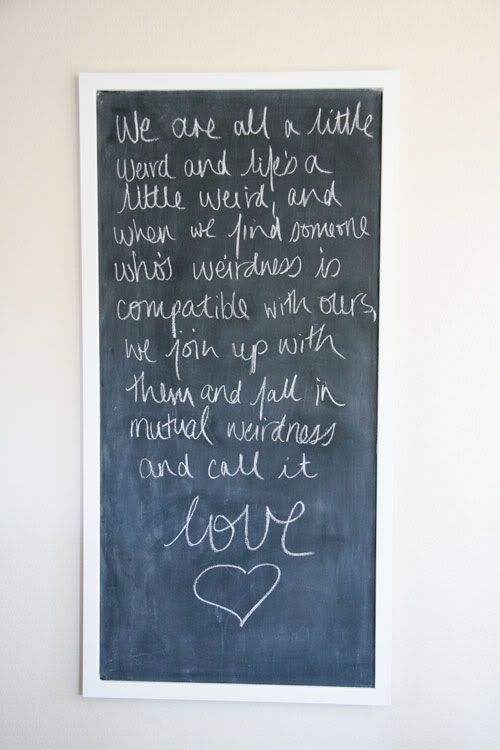 We are all a little
weird and life's a
little weird, and
when we find someone
who's weirdness is
compatible with ours,
we join up with
them and fall in
mutual weirdness
and call it
love